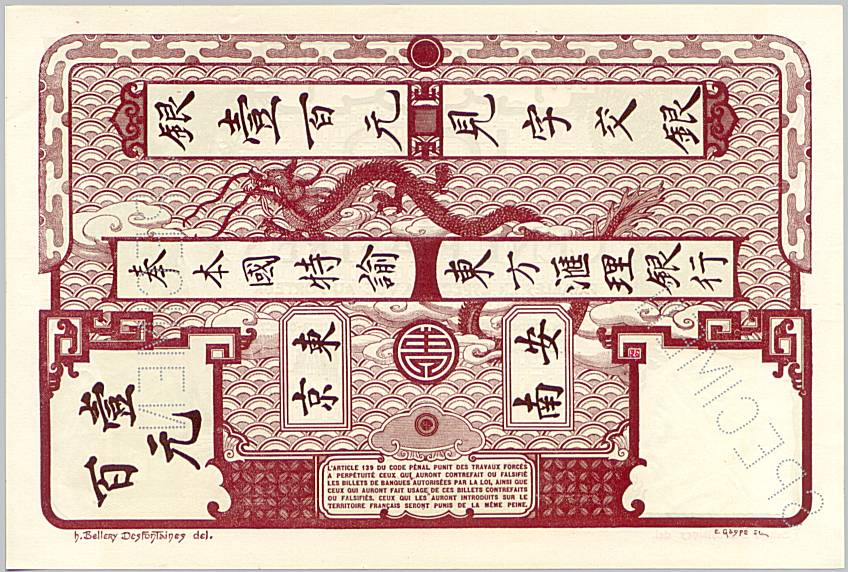 銀壹百元 見字交銀
奉本國特諭 東方滙理銀行
東京
安南
壹百元
L'ARTICLE 139 DU CODE PÉNAL PUNIT DES TRAVAUX FORCÉS
A PERPÉTUITÉ CEUX QUI AURONT CONTREFAIT OU FALSIFIÉ
LES BILLETS DE BANQUES AUTORISÉES PAR LA LOI, AINSI QUE
CEUX QUI AURONT FAIT USAGE DE CES BILLETS CONTREFAITS
OU FALSIFIÉS. CEUX QUI LES AURONT INTRODUITS SUR LE
TERRITOIRE FRANÇAIS SERONT PUNIS DE LA MÊME PEINE.
SPECIMEN
SPECIMEN
h. Bellery Desfontaines del.